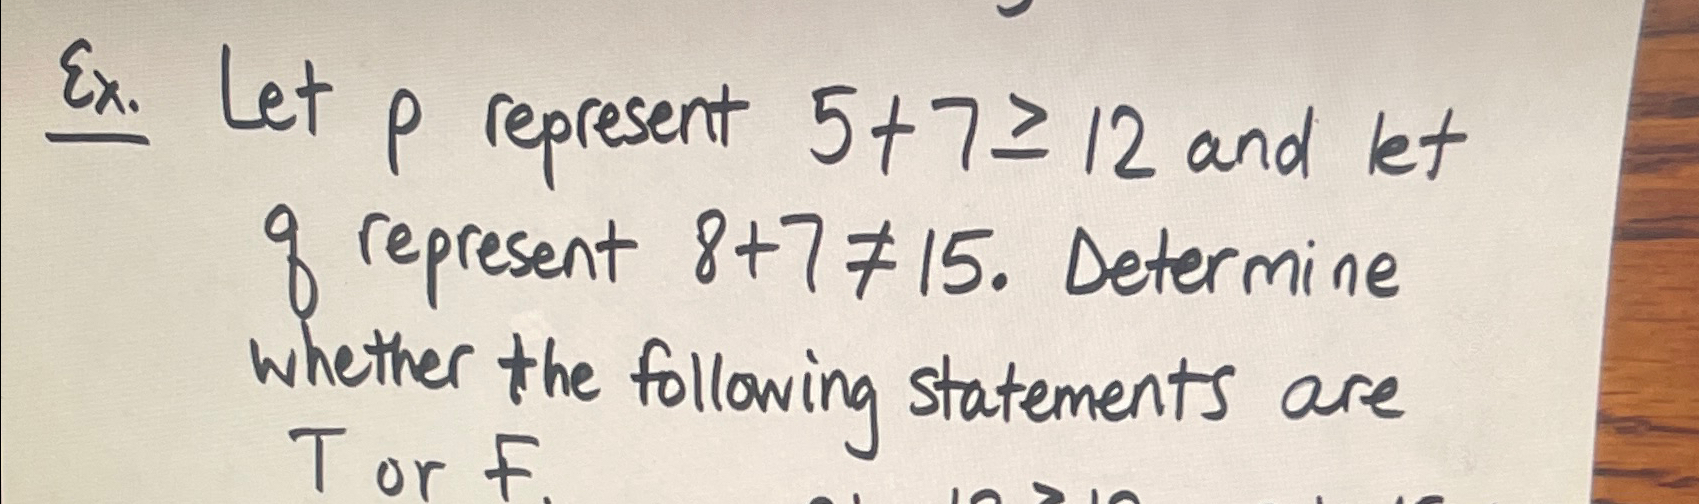 Ex. Let p represent 5+7≥12 and let
q represent 8+7≠15. Determine
whether the following statements are
T or F.